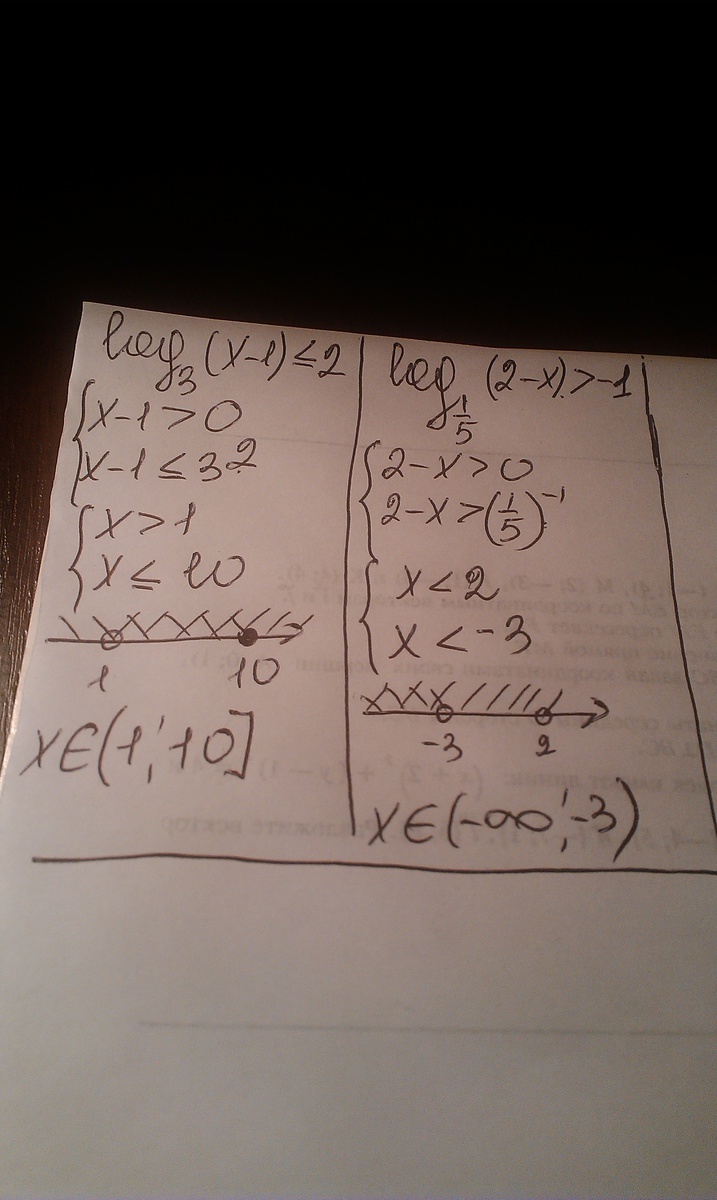 log₃(x-1)≤2
{x-1>0
x-1≤3²
{x>1
x≤10
1 10
x∈(1;10]
log_{1/5}(2-x)>-1
{2-x>0
2-x>(1/5)⁻¹
{x<2
x<-3
-3 2
x∈(-∞;-3)